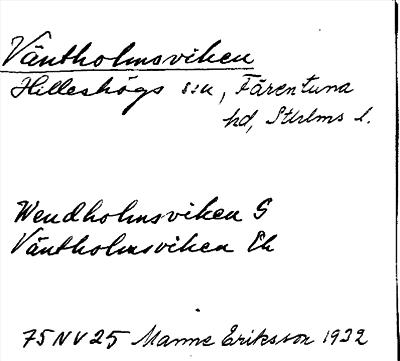 Väntholmsviken
Hilleshögs sn, Färentuna
hd, Sthlms l.
Wendholmsviken G
Väntholmsviken Ek
75NV25 Manne Eriksson 1932